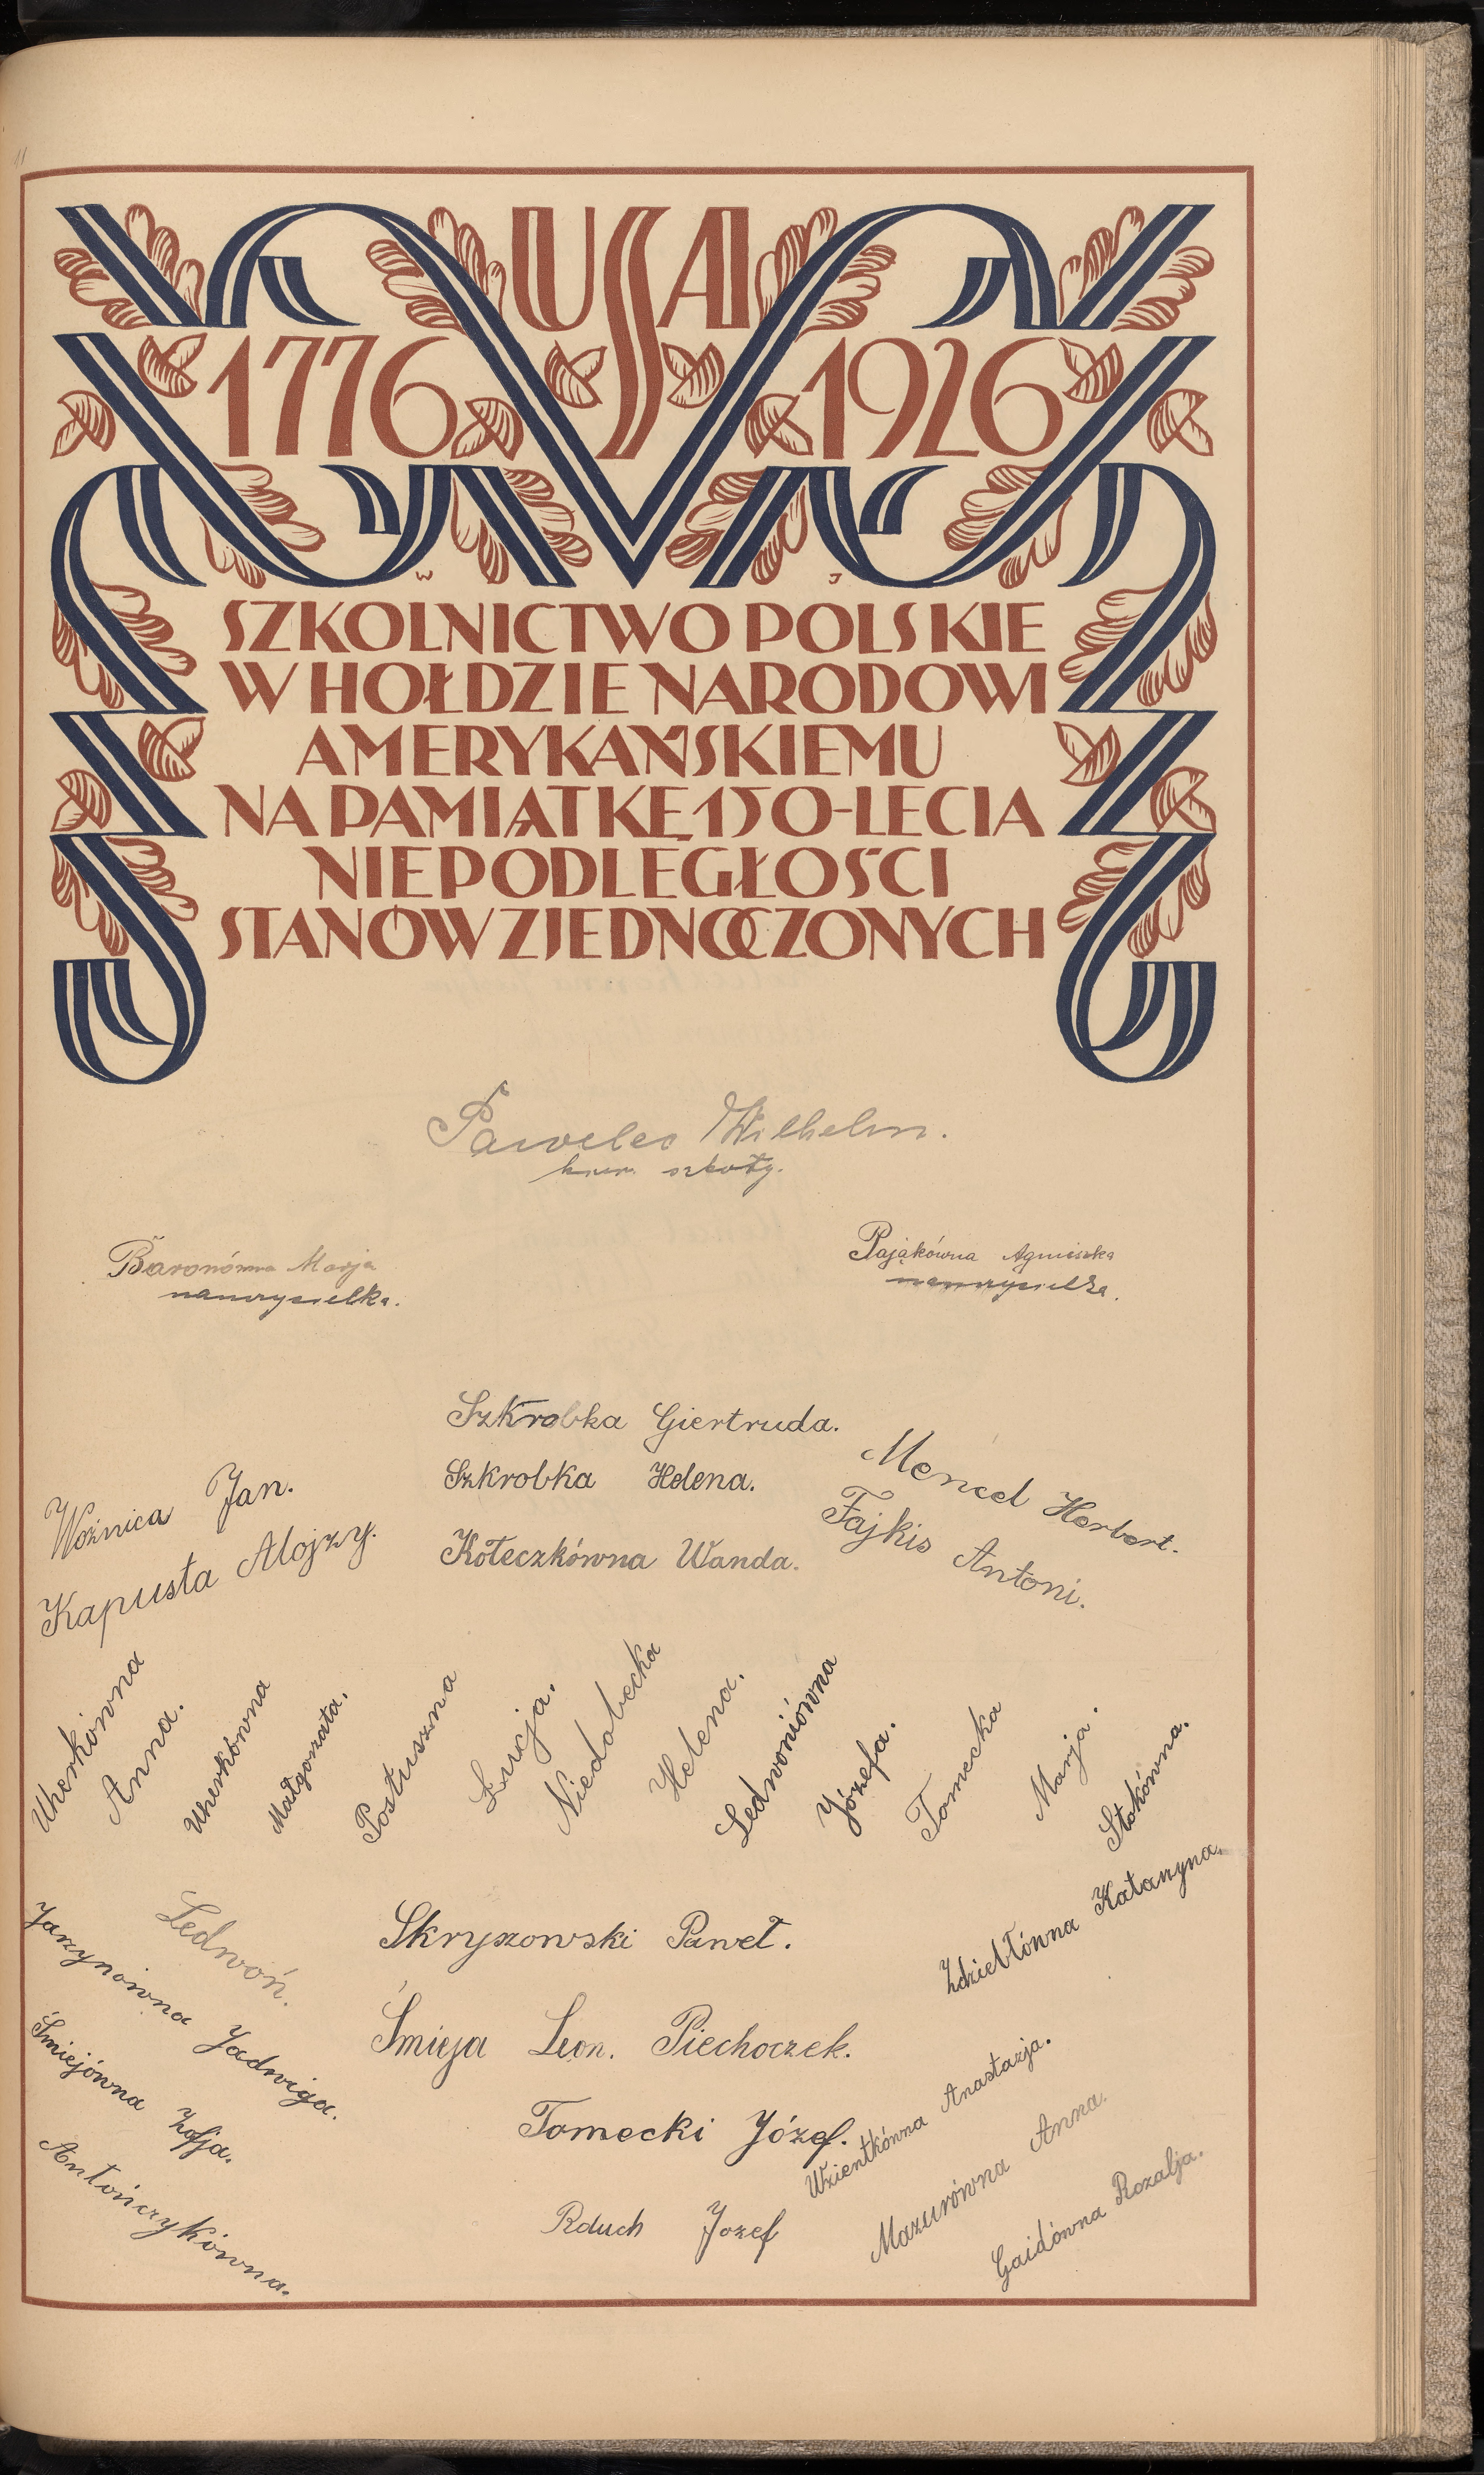 11
USA
1776 1926
W J
SZKOLNICTWO POLSKIE
W HOŁDZIE NARODOWI
AMERYKAŃSKIEMU
NA PAMIĄTKĘ 150-LECIA
NIEPODLEGŁOŚCI
STANÓW ZJEDNOCZONYCH
Pawelec Wilhelm.
kier. szkoły.
Baronówna Marja
nauczycielka.
Pająkówna Agnieszka
nauczycielka.
Szkrobka Giertruda.
Szkrobka Helena.
Kołeczkówna Wanda.
Woźnica Jan.
Kapusta Alojzy.
Mencel Herbert.
Fajkis Antoni.
Uherkówna
Anna.
Uherkówna
Małgorzata.
Postuszna
Łucja.
Niedobecka
Helena.
Ledwoniówna
Józefa.
Tomecka
Marja.
Stokówna.
Zdziebłówna Katarzyna.
Ledwoń.
Jarzynówna Jadwiga.
Śmiejówna Zofja.
Antończykówna.
Skryszowski Paweł.
Śmieja Leon. Piechoczek.
Tomecki Józef.
Rduch Jozef
Wzientkówna Anastazja.
Mazurówna Anna.
Gaidówna Rozalja.